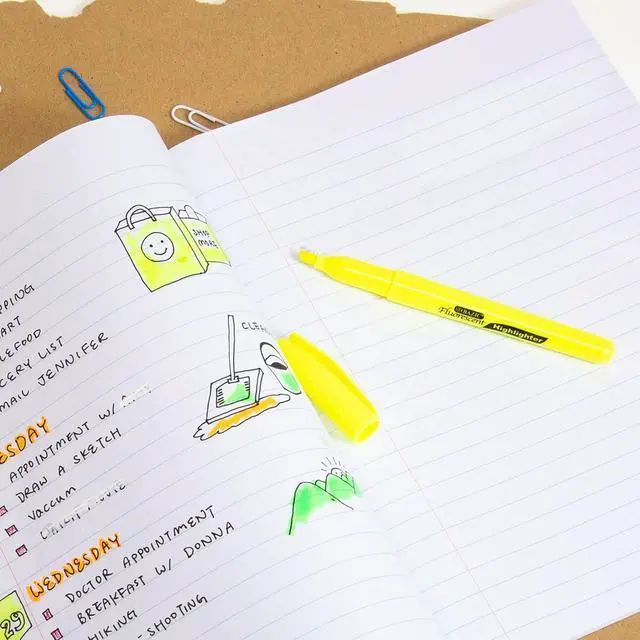 PPING
ART
LEFOOD
CERY LIST
MAIL JENNIFER
ESDAY
APPOINTMENT W/
DRAW A SKETCH
VACCUM
WEDNESDAY
DOCTOR APPOINTMENT
BREAKFAST W/ DONNA
HIKING
-SHOOTING
29
SHOP
MORE
CLEAN
BAZIC
Fluorescent Highlighter